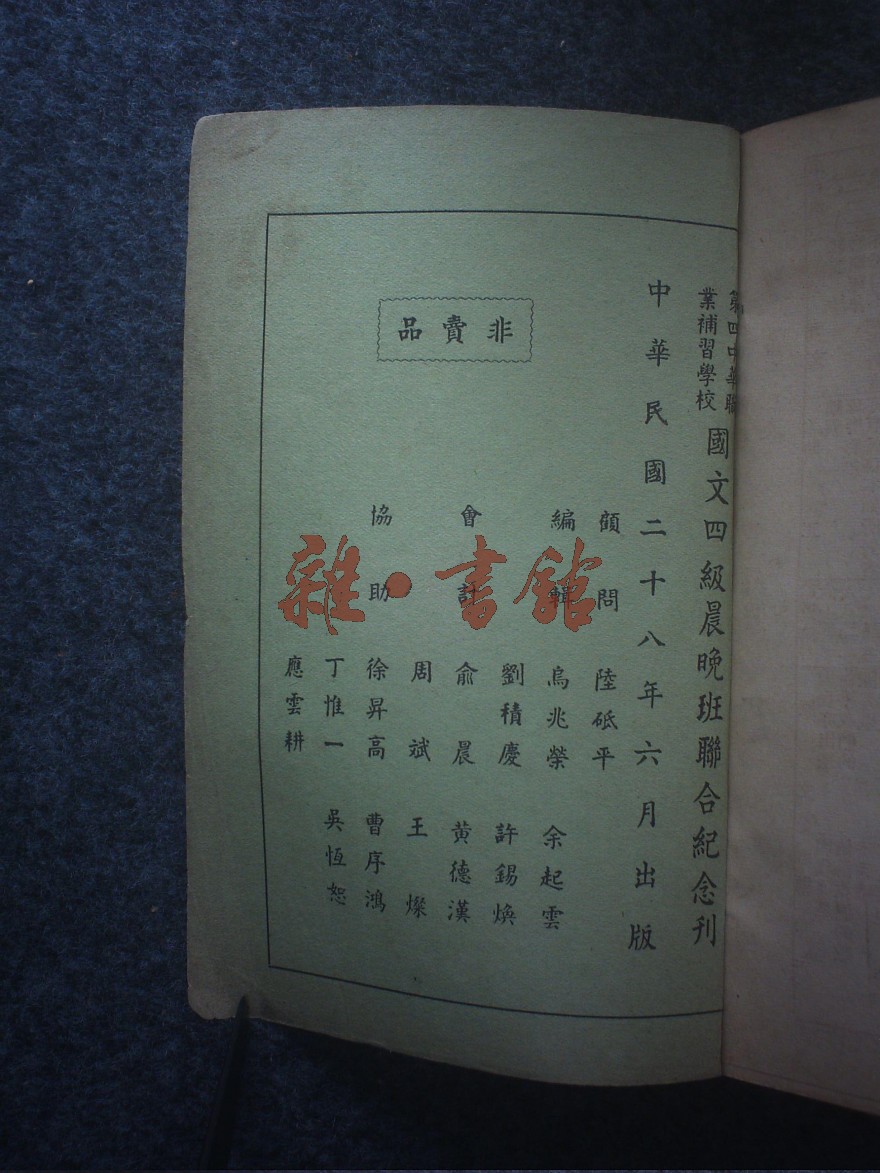 第四中華職
業補習學校
國文四級晨晚班聯合紀念刊
中華民國二十八年六月出版
顧問 陸砥平
編輯 烏兆榮 余起雲
劉積慶 許錫煥
會計 俞晨 黄德漢
周斌 王燦
協助 徐昇高 曹序鴻
丁惟一 吳恆恕
應雲耕
非賣品
雜·書館